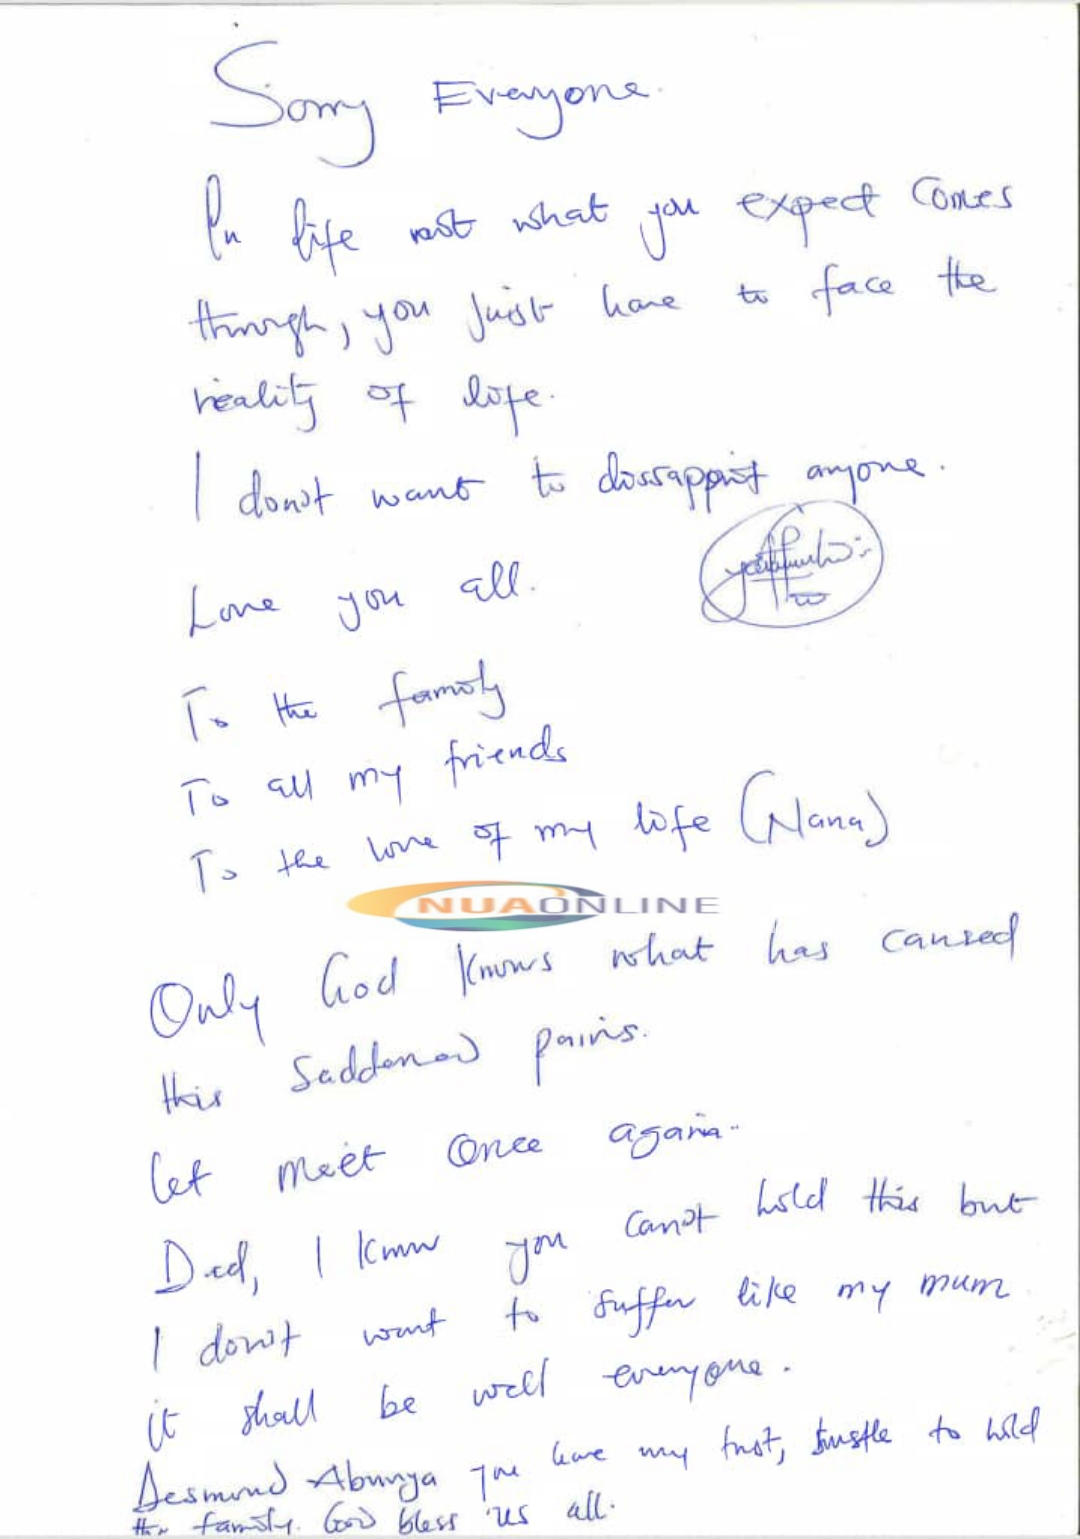 Sorry Everyone.
In life not what you expect comes
through, you just have to face the
reality of life.
I don't want to dissappoint anyone.
Love you all.
To the family
To all my friends
To the love of my life (Nana)
NUAONLINE
Only God knows what has caused
this Saddened pains.
Let meet Once again..
Dad, I know you canot hold this but
I don't want to suffer like my mum
it shall be well everyone.
Desmond Abunya you have my trust, to hold
the family. God bless us all.